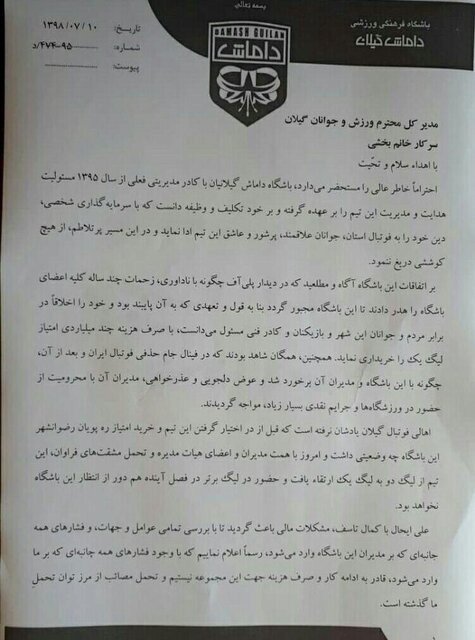 بسمه تعالی
باشگاه فرهنگی ورزشی
داماش گیلان
DAMASH GUILAN
داماش
تاریخ: ۱۳۹۸/۰۷/۱۰
شماره: ۴۷۴-۹۵/د
پیوست:
مدیر کل محترم ورزش و جوانان گیلان
سرکار خانم بخشی
با اهداء سلام و تحیّت
احتراماً خاطر عالی را مستحضر می‌دارد، باشگاه داماش گیلانیان با کادر مدیریتی فعلی از سال ۱۳۹۵ مسئولیت
هدایت و مدیریت این تیم را بر عهده گرفته و بر خود تکلیف و وظیفه دانست که با سرمایه‌گذاری شخصی،
دین خود را به فوتبال استان، جوانان علاقمند، پرشور و عاشق این تیم ادا نماید و در این مسیر پرتلاطم، از هیچ
کوششی دریغ ننمود.
بر اتفاقات این باشگاه آگاه و مطلعید که در دیدار پلی‌آف چگونه با ناداوری، زحمات چند ساله کلیه اعضای
باشگاه را هدر دادند تا این باشگاه مجبور گردد بنا به قول و تعهدی که به آن پایبند بود و خود را اخلاقاً در
برابر مردم و جوانان این شهر و بازیکنان و کادر فنی مسئول می‌دانست، با صرف هزینه چند میلیاردی امتیاز
لیگ یک را خریداری نماید. همچنین، همگان شاهد بودند که در فینال جام حذفی فوتبال ایران و بعد از آن،
چگونه با این باشگاه و مدیران آن برخورد شد و عوض دلجویی و عذرخواهی، مدیران آن با محرومیت از
حضور در ورزشگاه‌ها و جرایم نقدی بسیار زیاد، مواجه گردیدند.
اهالی فوتبال گیلان یادشان نرفته است که قبل از در اختیار گرفتن این تیم و خرید امتیاز ره پویان رضوانشهر
این باشگاه چه وضعیتی داشت و امروز با همت مدیران و اعضای هیات مدیره و تحمل مشقت‌های فراوان، این
تیم از لیگ دو به لیگ یک ارتقاء یافت و حضور در لیگ برتر در فصل آینده هم دور از انتظار این باشگاه
نخواهد بود.
علی ایحال با کمال تاسف، مشکلات مالی باعث گردید تا با بررسی تمامی عوامل و جهات، و فشارهای همه
جانبه‌ای که بر مدیران این باشگاه وارد می‌شود، رسماً اعلام نماییم که با وجود فشارهای همه چانبه‌ای که بر ما
وارد می‌شود، قادر به ادامه کار و صرف هزینه جهت این مجموعه نیستیم و تحمل مصائب از مرز توان تحمل
ما گذشته است.